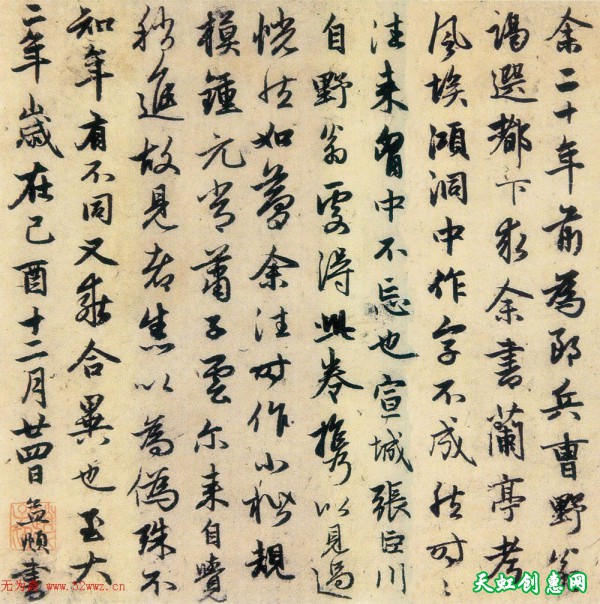 余二十年前為郎兵曹野翁
謁選都下求余書蘭亭考
風埃澒洞中作字不成然時〻
往来胷中不忘也宣城張臣川
自野翁處得此卷攜以見過
恍然如夢余往時作小楷規
模鍾元常蕭子雲尔来自覺
稍進故見者悉以為偽殊不
知年有不同又乖合異也至大
二年歲在己酉十二月廿四日孟頫書
天虹创惠网